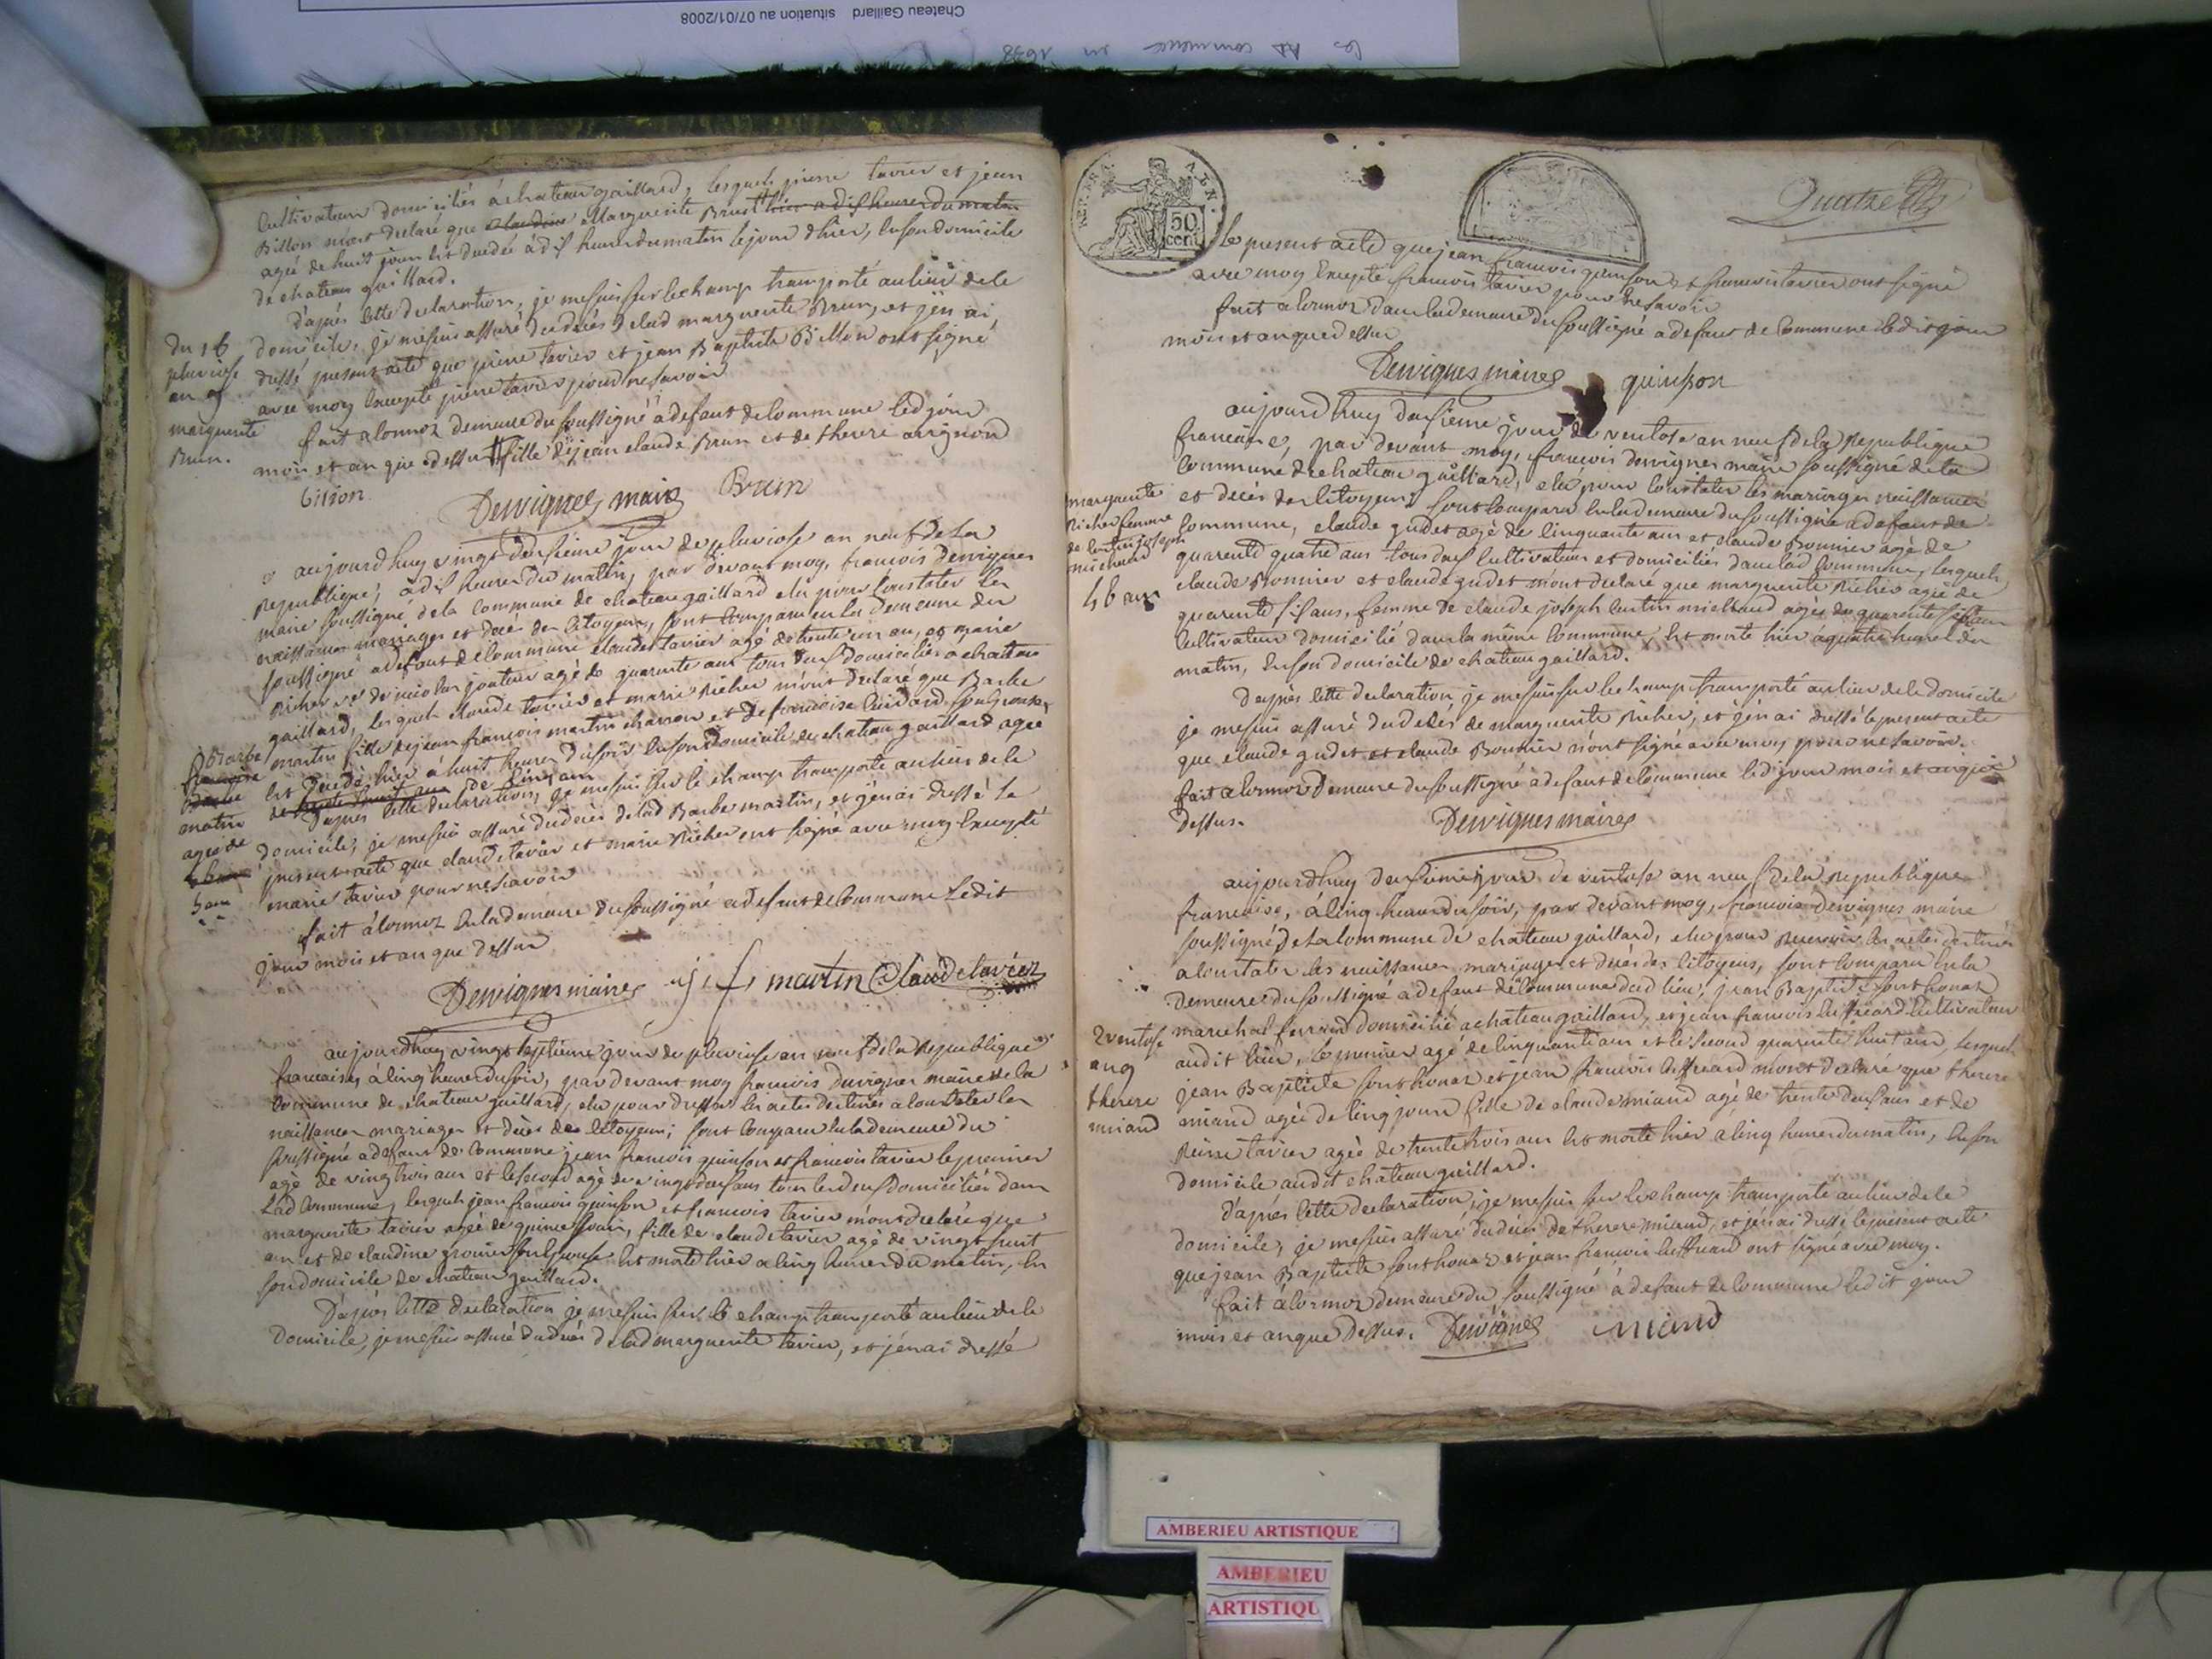 Chateau Gaillard situation au 07/01/2008
cultivateurs domiciliés a chateau gaillard, lesquels pierre tavier et jean
Billon m'ont declaré que claudine Marguerite Brun hier a dix heures du matin
agée de huit jours est decedée à dix heures du matin le jour d'hier, en son domicile
de chateau gaillard.
d'apres cette declaration, je me suis sur le champ transporté au lieu de le
domicile, je me suis assuré du decès de lad marguerite Brun, et j'en ai,
dressé present acte que pierre tavier et jean Baptiste Billon ont signé
avec moy excepté pierre tavier pour ne savoir
fait a cormoz demeure du soussigné a defaut de commune led jour
mois et an que dessus fille de jean claude Brun et de therese avignon
billon Dervignes maire Brun
du 16
pluviose
an 9
marguerite
Brun.
aujourdhuy vingt deuxieme jour de pluviose an neuf de la
republique, a dix heures du matin, par devant moy, francois Dervignes
maire soussigné de la commune de chateau gaillard elu pour constater les
naissances mariages et decés des citoyens, sont comparu en la demeure du
soussigné a defaut de commune claude tavier agé de trente un an, et marie
richer agé de quarente ans tous deux domiciliés a chateau
gaillard, lesquels claude tavier et marie richer m'ont declaré que Barbe
martin fille de jean francois martin charron et de francoise son epouse,
est decedé hier à huit heures du soir en son domicile de chateau gaillard agée
de cinq ans
D'apres cette declaration, je me suis sur le champ transporté au lieu de le
domicile, je me suis assuré du decès de lad Barbe martin, et j'en ai dressé le
present acte que claude tavier et marie richer ont signé avec moy excepté
marie tavier pour ne savoir
fait à cormoz en la demeure du soussigné a defaut de commune ledit
jour mois et an que dessus
Dervignes maire j f martin Claude tavier
Barbe
francoise
martin
agée de
5 ans
aujourdhuy vingt septieme jour de pluviose an neuf de la republique
francaise, à cinq heures du soir, par devant moy francois dervignes maire de la
commune de chateau gaillard, elu pour dresser les actes destinés a constater les
naissances mariages et decès des citoyens; sont comparu en la demeure du
soussigné a defaut de commune jean francois quinson et francois tavier le premier
agé de vingt trois ans et le second agé de vingt deux ans tous les deux domiciliés dans
Lad commune, lesquels jean francois quinson et francois tavier m'ont declaré que
marguerite tavier agée de quinze jours, fille de claude tavier agé de vingt huit
ans et de claudine son epouse est morte hier a cinq heures du matin, en
son domicile de chateau gaillard.
D'après cette declaration je me suis sur le champ transporté au lieu de le
domicile, je me suis assuré du decès de lad marguerite tavier, et j'en ai dressé
50
cent
Quatre
le present acte que jean francois quinson et francois tavier ont signé
avec moy excepté francois tavier pour ne savoir
fait a cormoz dans la demeure du soussigné a defaut de commune ledit jour
mois et an que dessus
Dervignes maire quinson
aujourdhuy deuxieme jour de ventose an neuf de la republique
francaise, par devant moy, francois dervignes maire soussigné de la
commune de chateau gaillard, elu pour constater les mariages naissances
et decès des citoyens, sont comparu en la demeure du soussigné a defaut de
commune, claude gudet agé de cinquante ans et claude Bonnier agé de
quarente quatre ans tous deux cultivateurs et domiciliés dans lad commune, lesquels
claude Bonnier et claude gudet m'ont declaré que marguerite richer agée de
quarente six ans, femme de claude joseph michaud agée de quarente six ans
cultivateur domicilié dans la même commune, est morte hier a quatre heures du
matin, en son domicile de chateau gaillard.
d'après cette declaration, je me suis sur le champ transporté au lieu de le domicile
je me suis assuré du decès de marguerite richer, et j'en ai dressé le present acte
que claude gudet et claude Bonnier n'ont signé avec moy pour ne savoir.
fait a cormoz demeure du soussigné à defaut de commune led jour mois et an que
dessus.
Dervignes maire
marguerite
richer femme
de joseph
michaud
46 ans
aujourdhuy deuxieme jour de ventose an neuf de la republique
francaise, à cinq heures du soir, par devant moy, francois Dervignes maire
soussigné de la commune de chateau gaillard, elu pour recevoir les actes destinés
a constater les naissances mariages et decès des citoyens, sont comparu en la
demeure du soussigné a defaut de commune dud lieu, jean Baptiste
marechal ferrand domicilié a chateau gaillard, et jean francois cultivateur
audit lieu, le premier agé de cinquante ans et le second quarente huit ans, lesquels
jean Baptiste et jean francois m'ont declaré que therese
miand agée de cinq jours fille de claude miand agé de trente deux ans et de
reine tavier agée de trente trois ans est morte hier a cinq heures du matin, en son
domicile audit chateau gaillard.
d'après cette declaration, je me suis sur le champ transporté au lieu de le
domicile, je me suis assuré du decès de therese miand, et j'en ai dressé le present acte
que jean Baptiste et jean francois ont signé avec moy.
fait à cormoz demeure du soussigné à defaut de commune ledit jour
mois et an que dessus. Dervignes miand
2 ventose
an 9
therese
miand
AMBERIEU ARTISTIQUE
AMBERIEU
ARTISTIQU